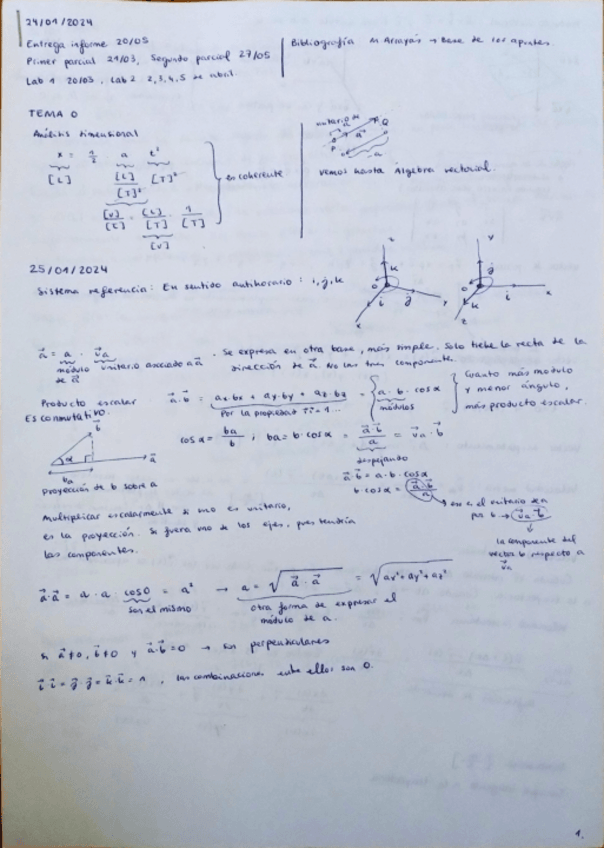 24/01/2024
Entrega informe 20/05
Primer parcial 21/03, Segundo parcial 27/05
Lab 1 20/03, Lab 2 2,3,4,5 de abril.
Bibliografía M Arrayás → Base de los apuntes.
TEMA 0
Análisis dimensional
x = 1/2 a t²
[L] [L]/[T]² [T]²
[v]/[T] = [L]/[T] · 1/[T]
[v]
es coherente
unitario de a
P Q a
vemos hasta Álgebra vectorial.
25/01/2024
Sistema referencia: En sentido antihorario: i, j, k
z k o i j x y
y j o i x k z
a⃗ = a · v⃗a
módulo de a⃗
unitario asociado a a⃗
· Se expresa en otra base, más simple. Solo tiene la recta de la
dirección de a⃗. No las tres componente.
Producto escalar
Es conmutativo.
a⃗·b⃗ = ax·bx + ay·by + az·bz = a · b · cosα
Por la propiedad i⃗·i⃗ = 1...
módulos
Cuanto más modulo
y menor ángulo,
más producto escalar.
cosα = ba/b ; ba = b·cosα = a⃗·b⃗/a = v⃗a · b⃗
despejando
a⃗·b⃗ = a·b·cosα
b·cosα = a⃗·b⃗/a
b⃗ α a⃗ ba
Proyección de b sobre a
ese es el unitario de a
por b → v⃗a·b⃗
la componente del
vector b respecto a
v⃗a
Multiplicar escalarmente si uno es unitario,
es la proyección. Si fuera uno de los ejes, pues tendría
las componentes.
a⃗·a⃗ = a · a · cos0 = a² → a = √a⃗ · a⃗ = √ax²+ay²+az²
son el mismo
otra forma de expresar el
módulo de a.
Si a⃗≠0, b⃗≠0 y a⃗·b⃗=0 → son perpendiculares
i⃗·i⃗ = j⃗·j⃗ = k⃗·k⃗ = 1, las combinaciones entre ellos son 0.
1.